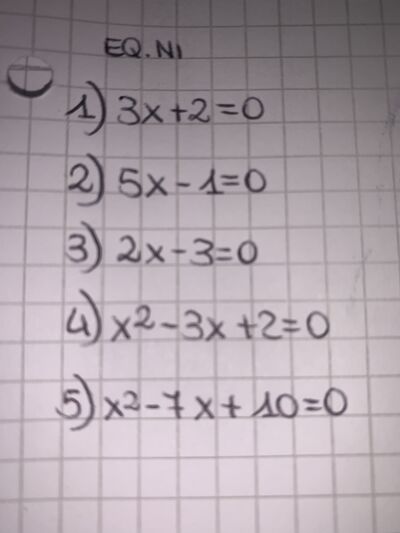 EQ.NI
1) 3x+2=0
2) 5x-1=0
3) 2x-3=0
4) x²-3x+2=0
5) x²-7x+10=0